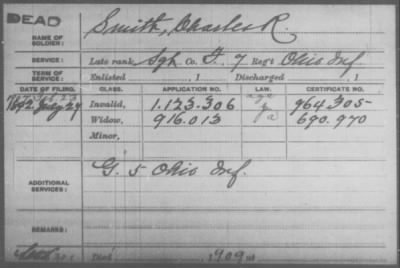 DEAD
Smith, Charles R.
NAME OF SOLDIER:
SERVICE: Late rank, Sgt. Co. F. 7 Reg't Ohio Inf.
TERM OF SERVICE: Enlisted , 1 Discharged , 1
DATE OF FILING. CLASS. APPLICATION NO. LAW. CERTIFICATE NO.
1892 July 29 Invalid, 1.123.306 964305
Widow, 916.013 a 690.970
Minor,
G. 5 Ohio Inf.
ADDITIONAL SERVICES:
REMARKS:
Died 1909 at